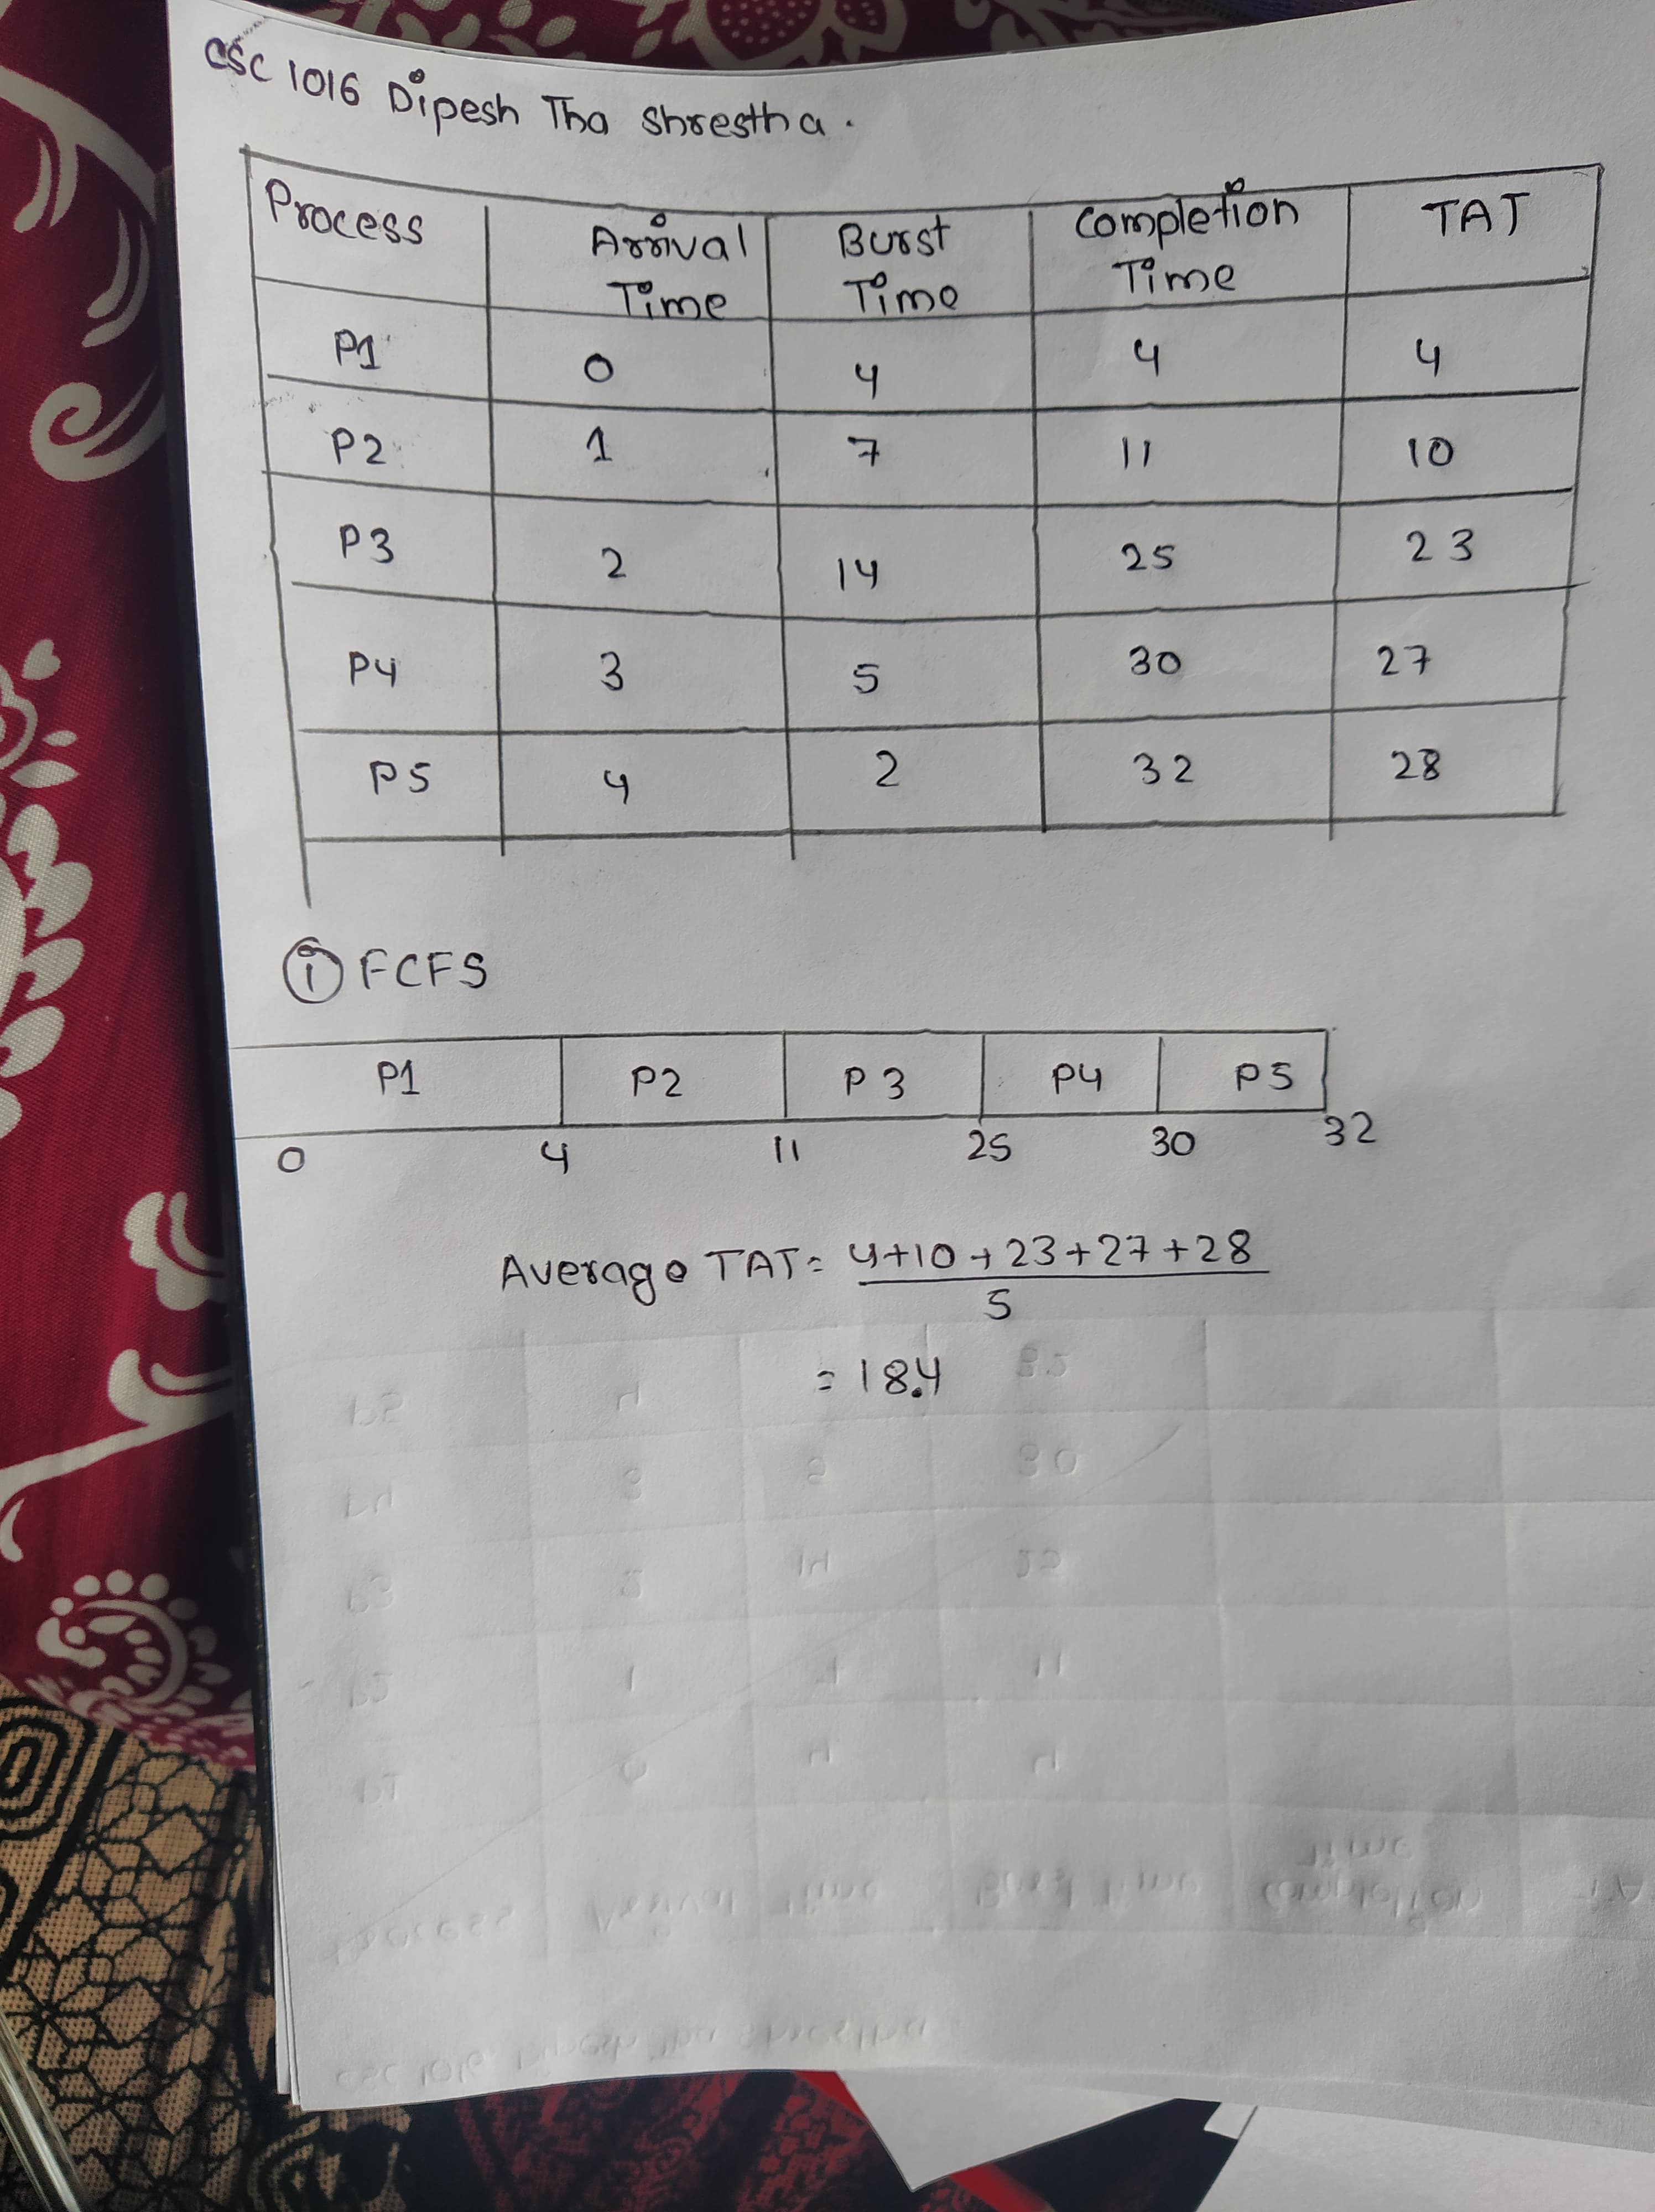 CSC 1016 Dipesh Tha Shrestha.
Process Arrival Time Burst Time Completion Time TAT
P1 0 4 4 4
P2 1 7 11 10
P3 2 14 25 23
P4 3 5 30 27
P5 4 2 32 28
i FCFS
P1 P2 P3 P4 P5
0 4 11 25 30 32
Average TAT = 4+10+23+27+28
5
= 18.4